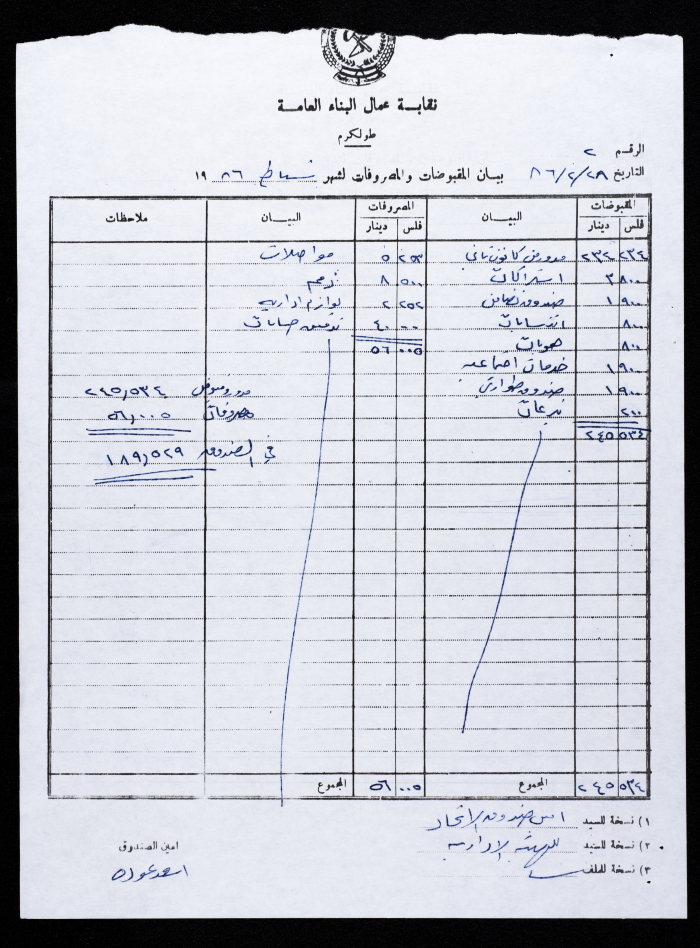 نقابة عمال البناء العامة
طولكرم
الرقم ٢
التاريخ ٨٦/٢/٢٨ بيان المقبوضات والمصروفات لشهر شباط ١٩٨٦
المقبوضات البيان المصروفات البيان ملاحظات
فلس دينار فلس دينار
٢٣٤ ٢٣٢ مدور من كانون ثاني ٢٥٣ ٥ مواصلات
٨٠٠ ٣ اشتراكات ٥٠٠ ٨
٩٠٠ ١ صندوق تضامن ٢٥٢ ٢ لوازم ادارية
٨٠٠ انتسابات ٠٠٠ ٤٠ تدقيق حسابات
٨٠٠ هويات ٠٠٥ ٥٦
٩٠٠ ١ خدمات اجتماعية
٩٠٠ ١ صندوق طوارئ مدور ومقبوض ٢٤٥,٥٣٤
٢٠٠ تبرعات مصروفات ٥٦,٠٠٥
٥٣٤ ٢٤٥
في الصندوق ١٨٩,٥٢٩
٥٣٤ ٢٤٥ المجموع ٠٠٥ ٥٦ المجموع
١) نسخة للسيد امين صندوق الاتحاد
٢) نسخة للسيد الهيئة الادارية
٣) نسخة للملف
امين الصندوق
اسعد عودة